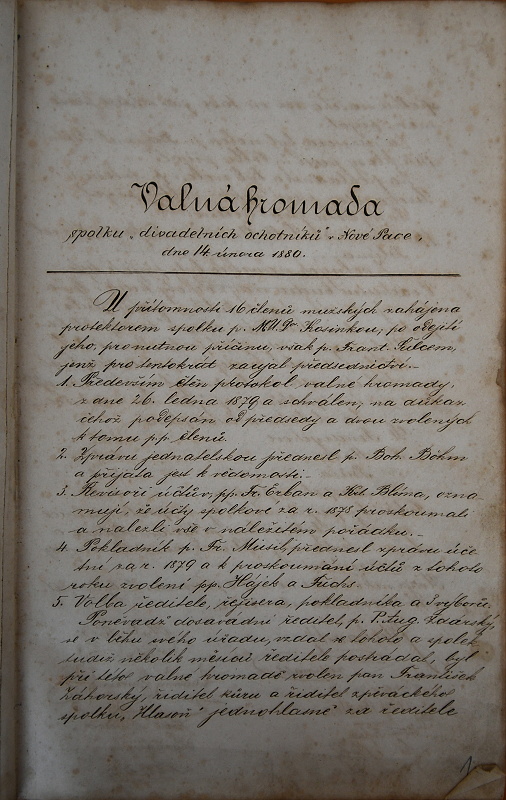 Valná hromada
spolku „divadelních ochotníků" v Nové Pace,
dne 14 února 1880.
U přítomnosti 16 členů mužských zahájena
protektorem spolku p. MU Dr Kosinkou, po odjití
jeho, pro nutnou příčinu, však p. Frant.
jenž pro tentokrát zaujal předsednictví.-
1. Předevsím čten protokol valné hromady,
z dne 26. ledna 1879 a schválen, na důkaz
čehož podepsán od předsedy a dvou zvolených
k tomu p.p. členů.
2. Zprávu jednatelskou přednesl p. Boh. Böhm
a přijata jest k vědomosti.-
3. Revisoři účtův, pp. Fr. Erban a Blíma, ozna-
mují, že účty spolkové za r. 1878 proskoumali
a nalezli vše v náležitém pořádku.-
4. Pokladník p. Fr. Musil, přednesl zprávu úče-
tní za r. 1879 a k proskoumání účtů z tohoto
roku zvoleni pp. Hájek a Fuchs.
5. Volba ředitele, režisera, pokladníka a 3 výborů.
Poněvadž dosavádní ředitel, p. P. Aug. Žďárský,
se v běhu svého úřadu, vzdal se tohoto a spolek
tudíž několik měsíců ředitele postrádal, byl
při této valné hromadě zvolen pan František
Záhorský, ředitel kůru a ředitel zpěváckého
spolku „Hlasoň" jednohlasně za ředitele
1